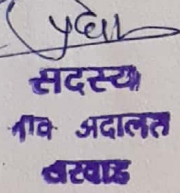 सदस्या
गांव अदालत
बरवाड